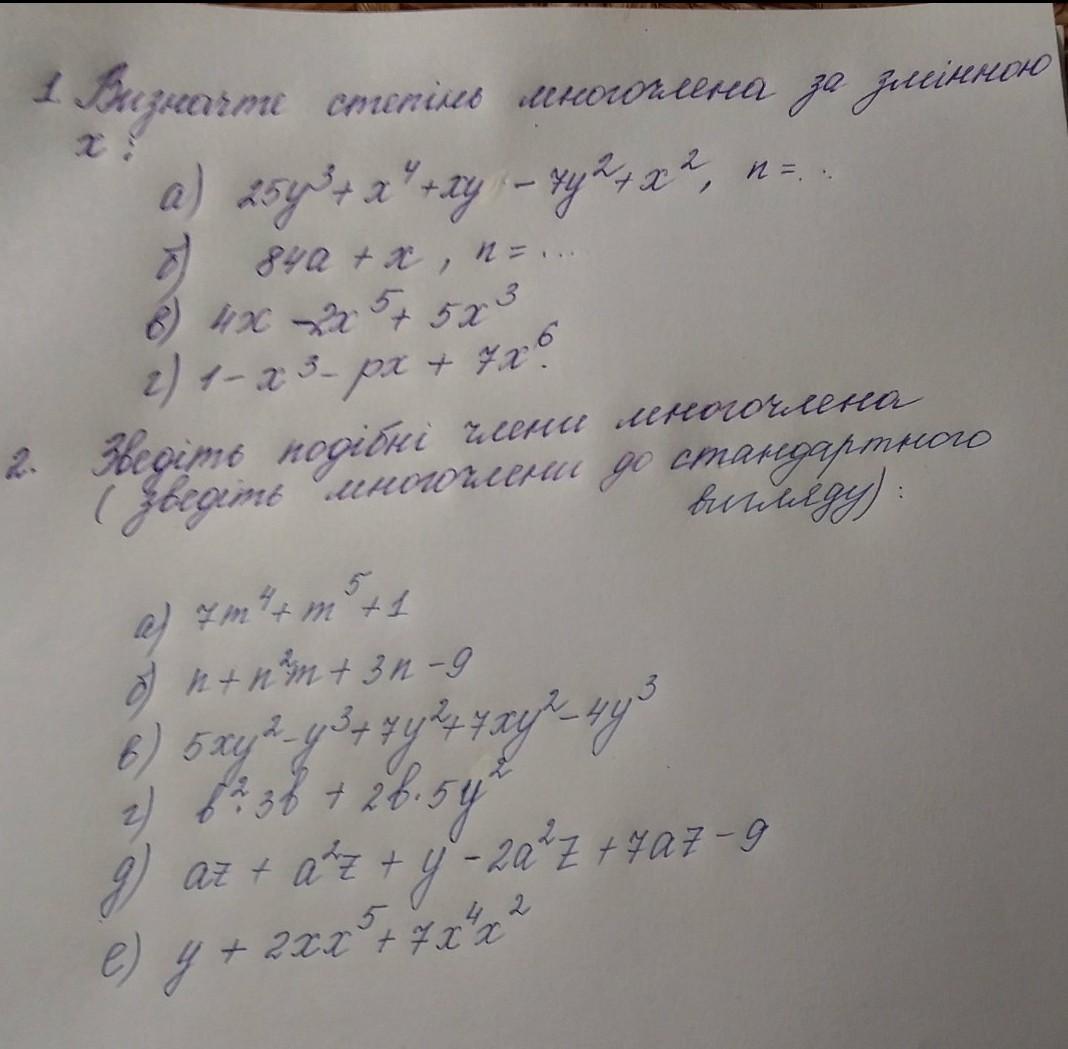 1. Визначте степінь многочлена за змінною
x:
а) 25y³ + x⁴ + xy - 7y² + x², n = ...
б) 84a + x, n = ...
в) 4x - 2x⁵ + 5x³
г) 1 - x³ - px + 7x⁶.
2. Зведіть подібні члени многочлена
(зведіть многочлени до стандартного
вигляду):
а) 7m⁴ + m⁵ + 1
б) n + n²m + 3n - 9
в) 5xy² - y³ + 7y² + 7xy² - 4y³
г) b² · 3b + 2b · 5y²
д) az + a²z + y - 2a²z + 7az - 9
е) y + 2xx⁵ + 7x⁴x²